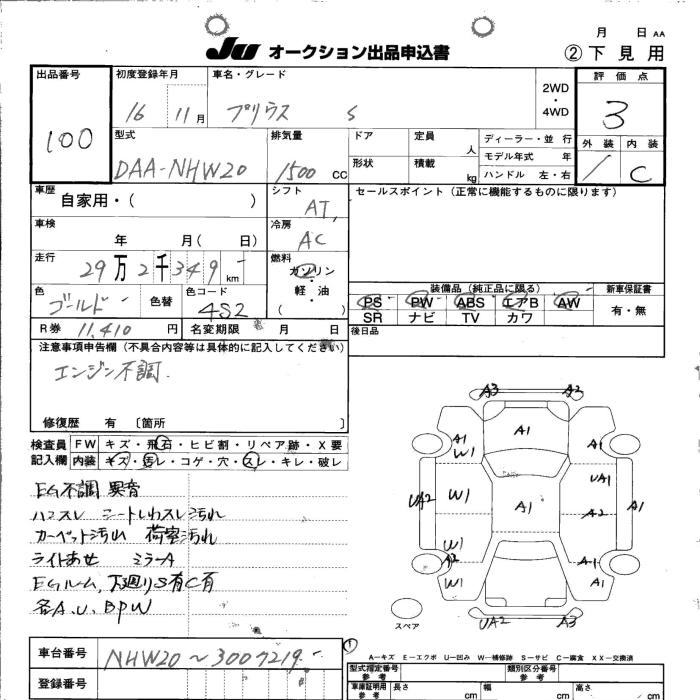 月 日 AA
JU オークション出品申込書 ②下見用
出品番号 初度登録年月 車名・グレード 2WD・4WD 評価点
100 16 11月 プリウス S 3
型式 排気量 ドア 定員 人 ディーラー・並行 外装 内装
モデル年式 年
DAA-NHW20 1500 CC 形状 積載 kg ハンドル 左・右 / C
車歴 自家用・( ) シフト AT セールスポイント(正常に機能するものに限ります)
車検 年 月( 日) 冷房 AC
走行 29万2千349km 燃料 ガソリン・軽油 ( )
装備品(純正品に限る) 新車保証書
色 ゴールド 色替 色コード 4S2
PS PW ABS エアB AW 有・無
SR ナビ TV カワ
R券 11,410円 名変期限 月 日 後日品
注意事項申告欄(不具合内容等は具体的に記入してください)
エンジン不調.
修復歴 有 〔箇所 〕
検査員記入欄 FW キズ・飛石・ヒビ割・リペア跡・X要
内装 キズ・汚レ・コゲ・穴・スレ・キレ・破レ
EG不調 異音
ハンスレ シートしわスレ汚れ
カーペット汚れ 荷室汚れ
ライトあせ ミラーA
EGルーム、下廻りS有C有
各A.U.BPW
A3 A2
A1 W1 A1 A1
UA1
UA2 W1 A1 A2 A1
W1 A2 A1
W1 A1
UA2 A3
スペア
①
A-キズ E-エクボ U-凹み W-補修跡 S-サビ C-腐食 XX-交換済
車台番号 NHW20~3007219
型式指定番号 参考 類別区分番号 参考
登録番号
車庫証明用 参考 長さ cm 幅 cm 高さ cm